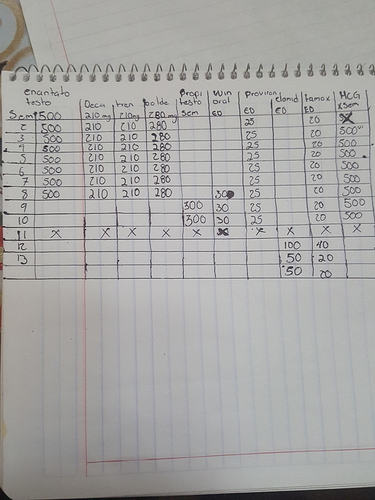 enantato testo Deca tren bolde Propi testo sem Win oral ED Proviron ED clomid ED tamox ED HCG x sem
Sem 500 210mg 210mg 280mg 25 20
2 500 210 210 280 25 20 500
3 500 210 210 280 25 20 500
4 500 210 210 280 25 20 500
5 500 210 210 280 25 20 500
6 500 210 210 280 25 20 500
7 500 210 210 280 25 20 500
8 500 210 210 280 30 25 20 500
9 300 30 25 20 500
10 300 30 25 20 500
11 x x x x x x x x x
12 100 40
13 50 20
50 20